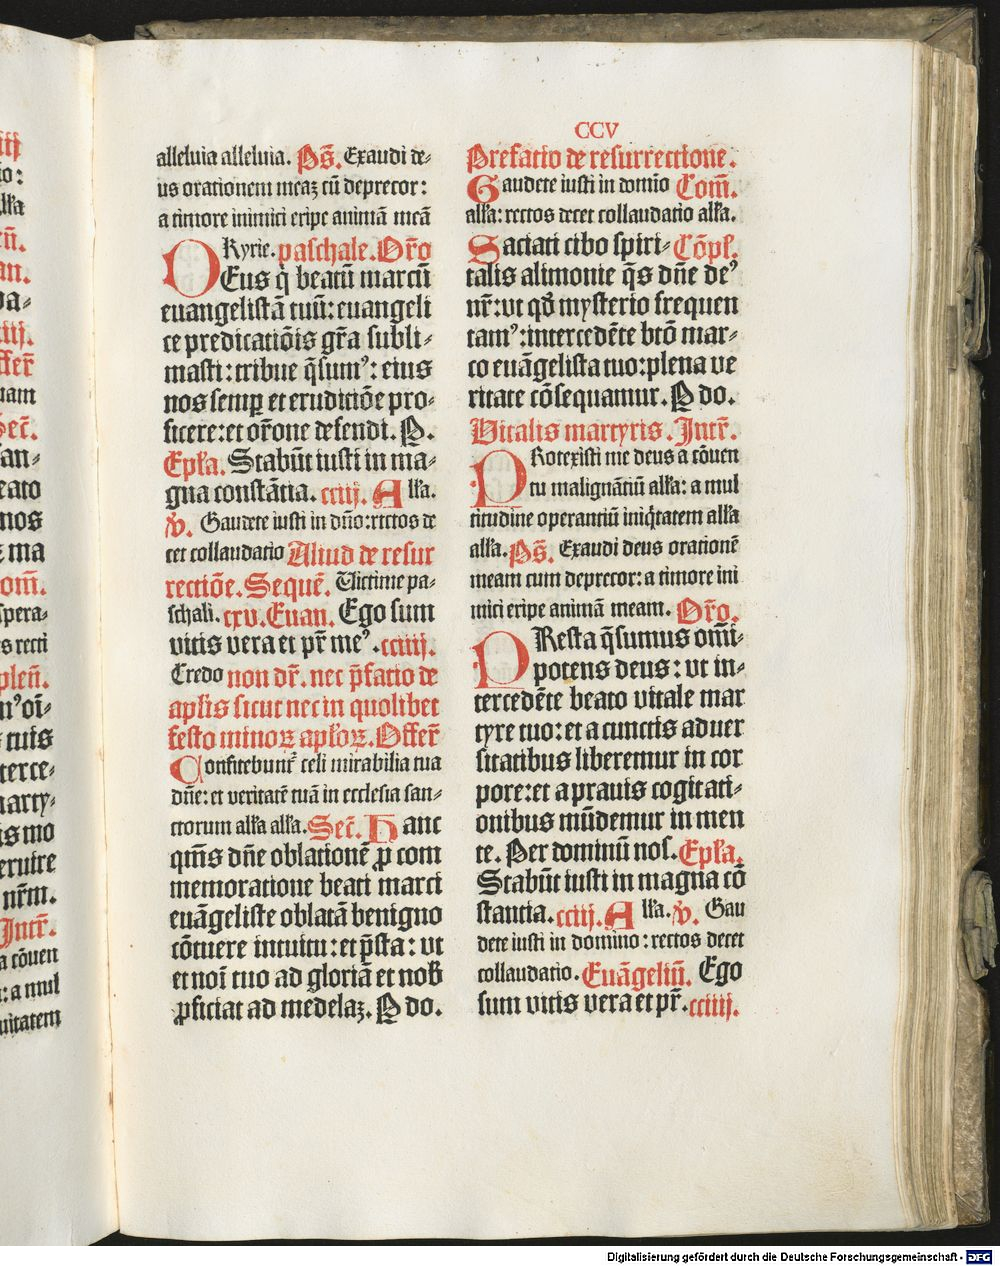 CCV
alleluia alleluia. Ps̄. Exaudi de-
us orationem meaz cū deprecor:
a timore inimici eripe animā meā
Kyrie. paschale. Or̄o
DEus q̇ beatū marcū
euangelistā tuū: euangeli
ce predicatiōis gr̄a subli-
masti: tribue q̄sumꝰ: eius
nos semꝑ et eruditiōe pro-
ficere: et or̄one defendi. P.
Epl̄a. Stabūt iusti in ma-
gna constātia. cciij. All̄a.
v̄. Gaudete iusti in dn̄o: rectos de
cet collaudatio Aliud de resur
rectiōe. Sequē. Victime pa-
schali. cxv. Euan. Ego sum
vitis vera et pr̄ meꝰ. cciiij.
Credo non dr̄. nec p̄fatio de
apl̄is sicut nec in quolibet
festo minoꝝ apl̄oꝝ. Offer̄
Confitebunt̄ celi mirabilia tua
dn̄e: et veritatē tuā in ecclesia san-
ctorum all̄a all̄a. Sec̄. Hanc
qm̄s dn̄e oblationē ꝓ com
memoratione beati marci
euāgeliste oblatā benigno
cōtuere intuitu: et p̄sta: vt
et noī tuo ad gloriā et nob̄
ꝓficiat ad medelaz. P do.
Prefatio de resurrectione.
Gaudete iusti in domīo Com̄.
all̄a: rectos decet collaudatio all̄a.
Saciati cibo spiri- Cōpl̄.
talis alimonie q̄s dn̄e deꝰ
nr̄: vt qd̄ mysterio frequen
tamꝰ: intercedēte btō mar-
co euāgelista tuo: plena ve
ritate cōsequamur. P do.
Vitalis martyris. Intr̄.
PRotexisti me deus a cōuen
tu malignātiū all̄a: a mul
titudine operantiū iniq̇tatem all̄a
all̄a. Ps̄. Exaudi deus orationē
meam cum deprecor: a timore ini
mici eripe animā meam. Or̄o.
PResta q̄sumus om̄i-
potens deus: vt in-
tercedēte beato vitale mar
tyre tuo: et a cunctis aduer
sitatibus liberemur in cor
pore: et a prauis cogitati-
onibus mūdemur in men
te. Per dominū nos. Epl̄a.
Stabūt iusti in magna cō
stantia. cciij. All̄a. v̄. Gau
dete iusti in domino: rectos decet
collaudatio. Euāgeliū. Ego
sum vitis vera et pr̄. cciiij.
Digitalisierung gefördert durch die Deutsche Forschungsgemeinschaft - DFG